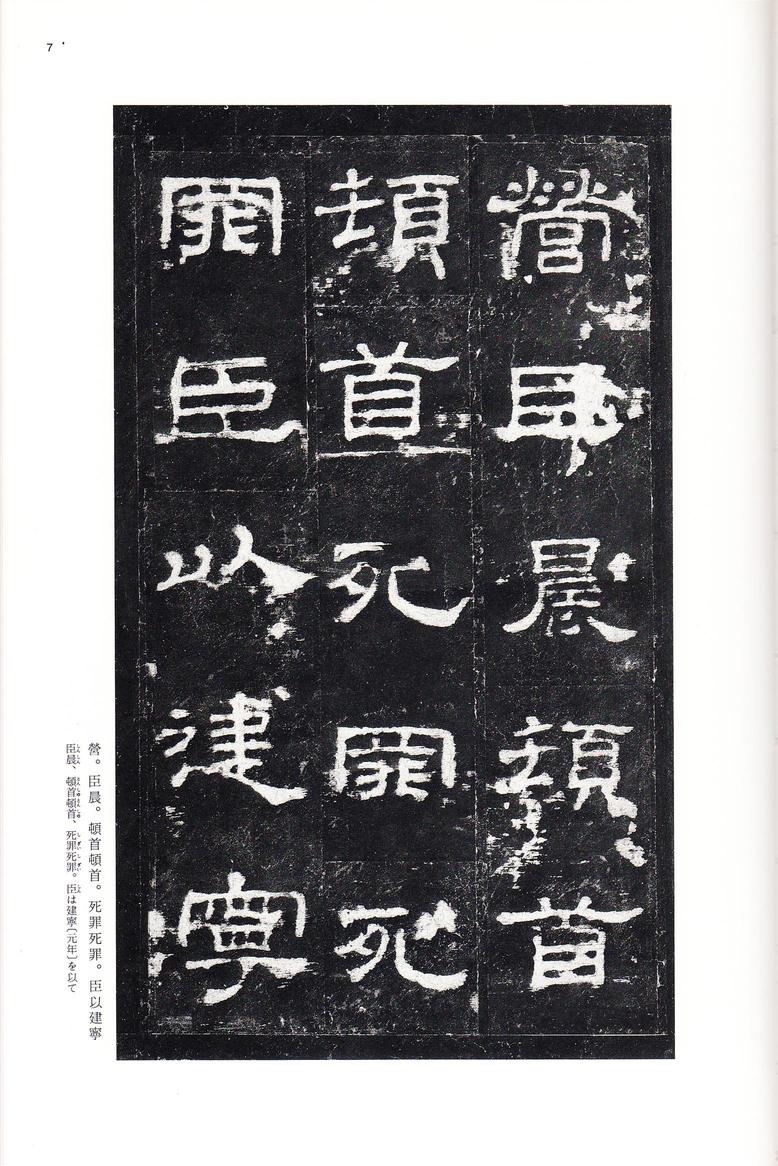 7
營臣晨頓首
頓首死罪死
罪臣以建寧
營。臣晨。頓首頓首。死罪死罪。臣以建寧
臣晨、頓首頓首、死罪死罪。臣は建寧〔元年〕を以て